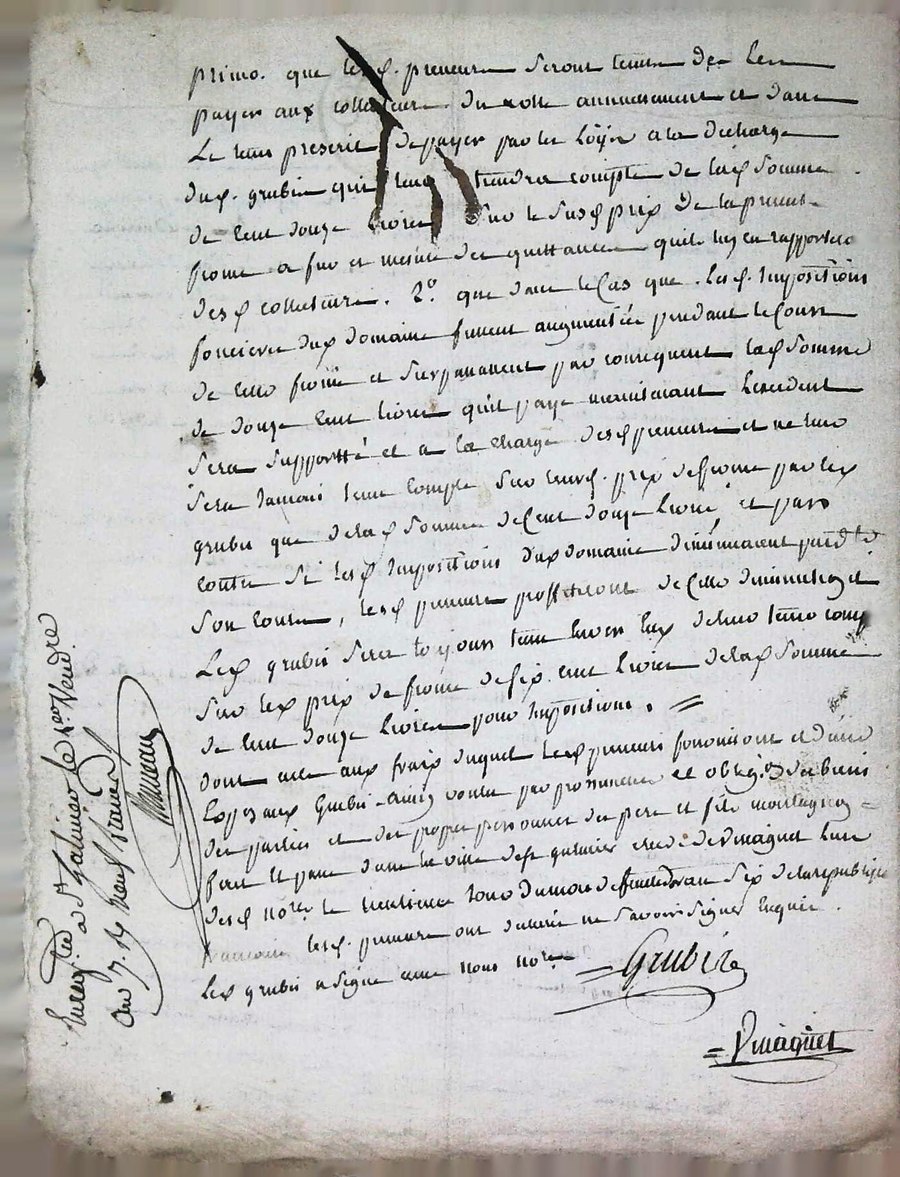 primo. que lesd. preneurs seront tenus de les
payer aux collecteurs du rolle annuellement et dans
le tems prescrit de payer par les loix a la decharge
dud. grubis qui leur tiendra compte de lad. somme
de cent douze livres sur le susd. prix de la presente
ferme a fur et mesure des quittances quils luy en rapporteront
desd. collecteurs. 2°. que dans le cas que lesd. impositions
foncieres dud. domaine fussent augmentées pendant le cours
de cette ferme et surpassassent par consequent lad. somme
de douze cent livres qu'il paye maintenant lexcedent
sera supportté et a la charge desd. preneurs et ne leur
sera jamais tenu compte sur leurd. prix de ferme par led.
grubis que de lad. somme de cent douze livres, et par
contre si lesd. impositions dud. domaine diminuaient pend.t le
son cours, lesd. preneurs proffiteront de cette diminution et
led. grubis sera toujours tenu envers eux de leur tenir comp.
sur led. prix de ferme de six cent livres de lad. somme
de cent douze livres pour impositions. =
dont acte aux fraix duquel lesd. preneurs fourniront et
aud. Grubis ainsi voulu par promesses et oblig.on des biens
des parties et des propres personnes des pere et fils
fait et passé dans la ville de s.t galmier etude de Vinaguet l'un
desd. no.res le treizieme jour du mois de an six de la republique
francaise lesd. preneurs ont declaré ne savoir signer enquis.
led. grubis a signé avec nous no.res = Grubis
= Vinaguet
Enreg.tré a S.t Galmier le 1.er Vend.re
an 7. R neuf francs